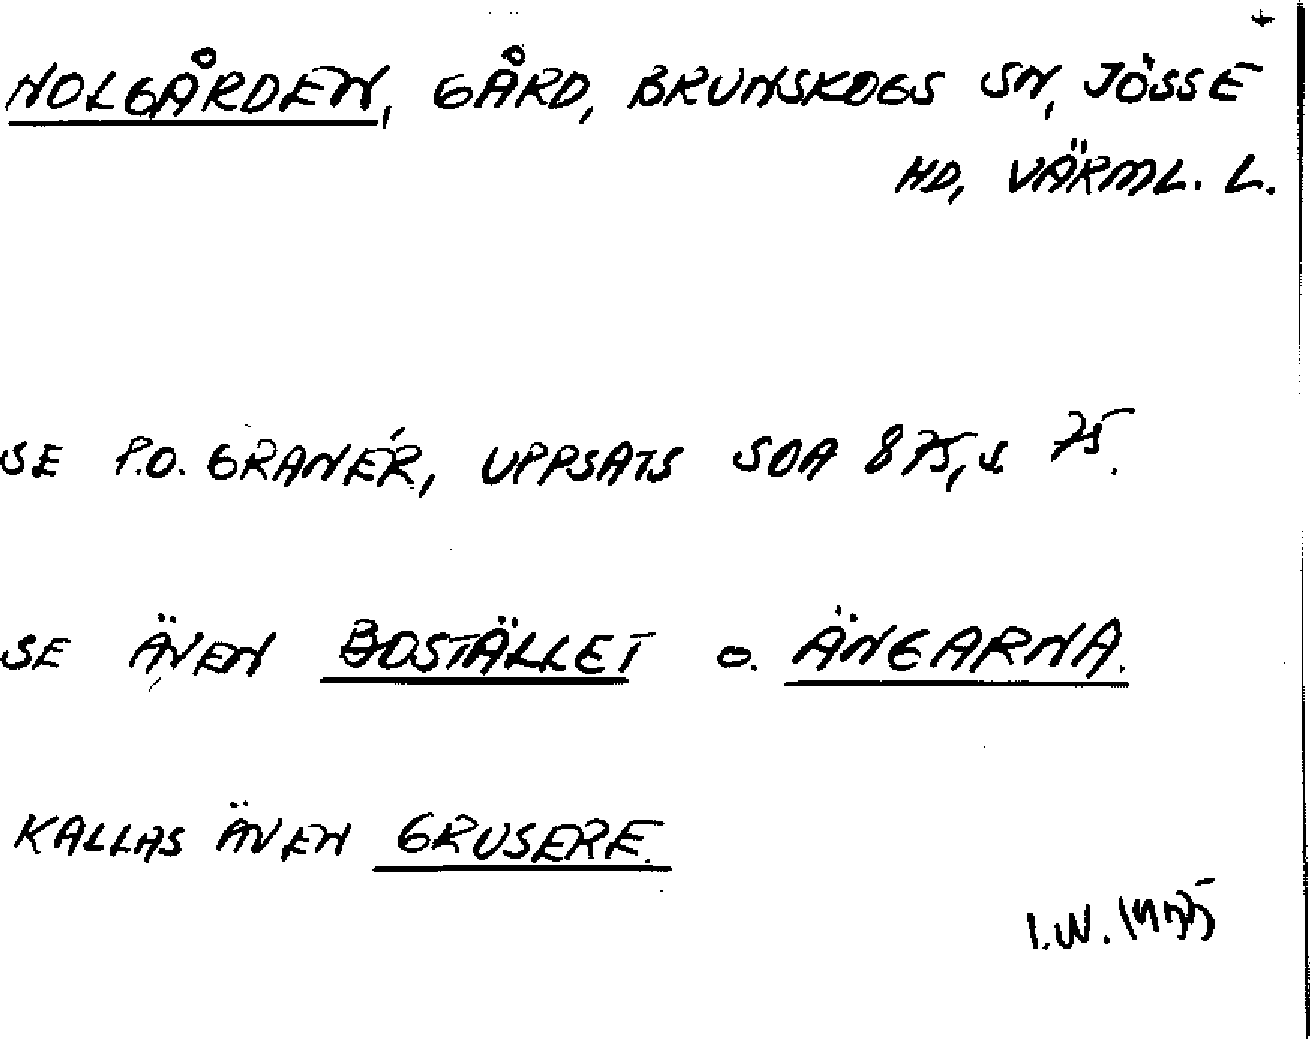 NOLGÅRDEN, GÅRD, BRUNSKOGS SN, JÖSSE
HD, VÄRML. L.
SE P.O. GRANÉR, UPPSATS SOA 875, s. 75.
SE ÄVEN BOSTÄLLET o. ÄNGARNA.
KALLAS ÄVEN GRUSERE.
I.W.